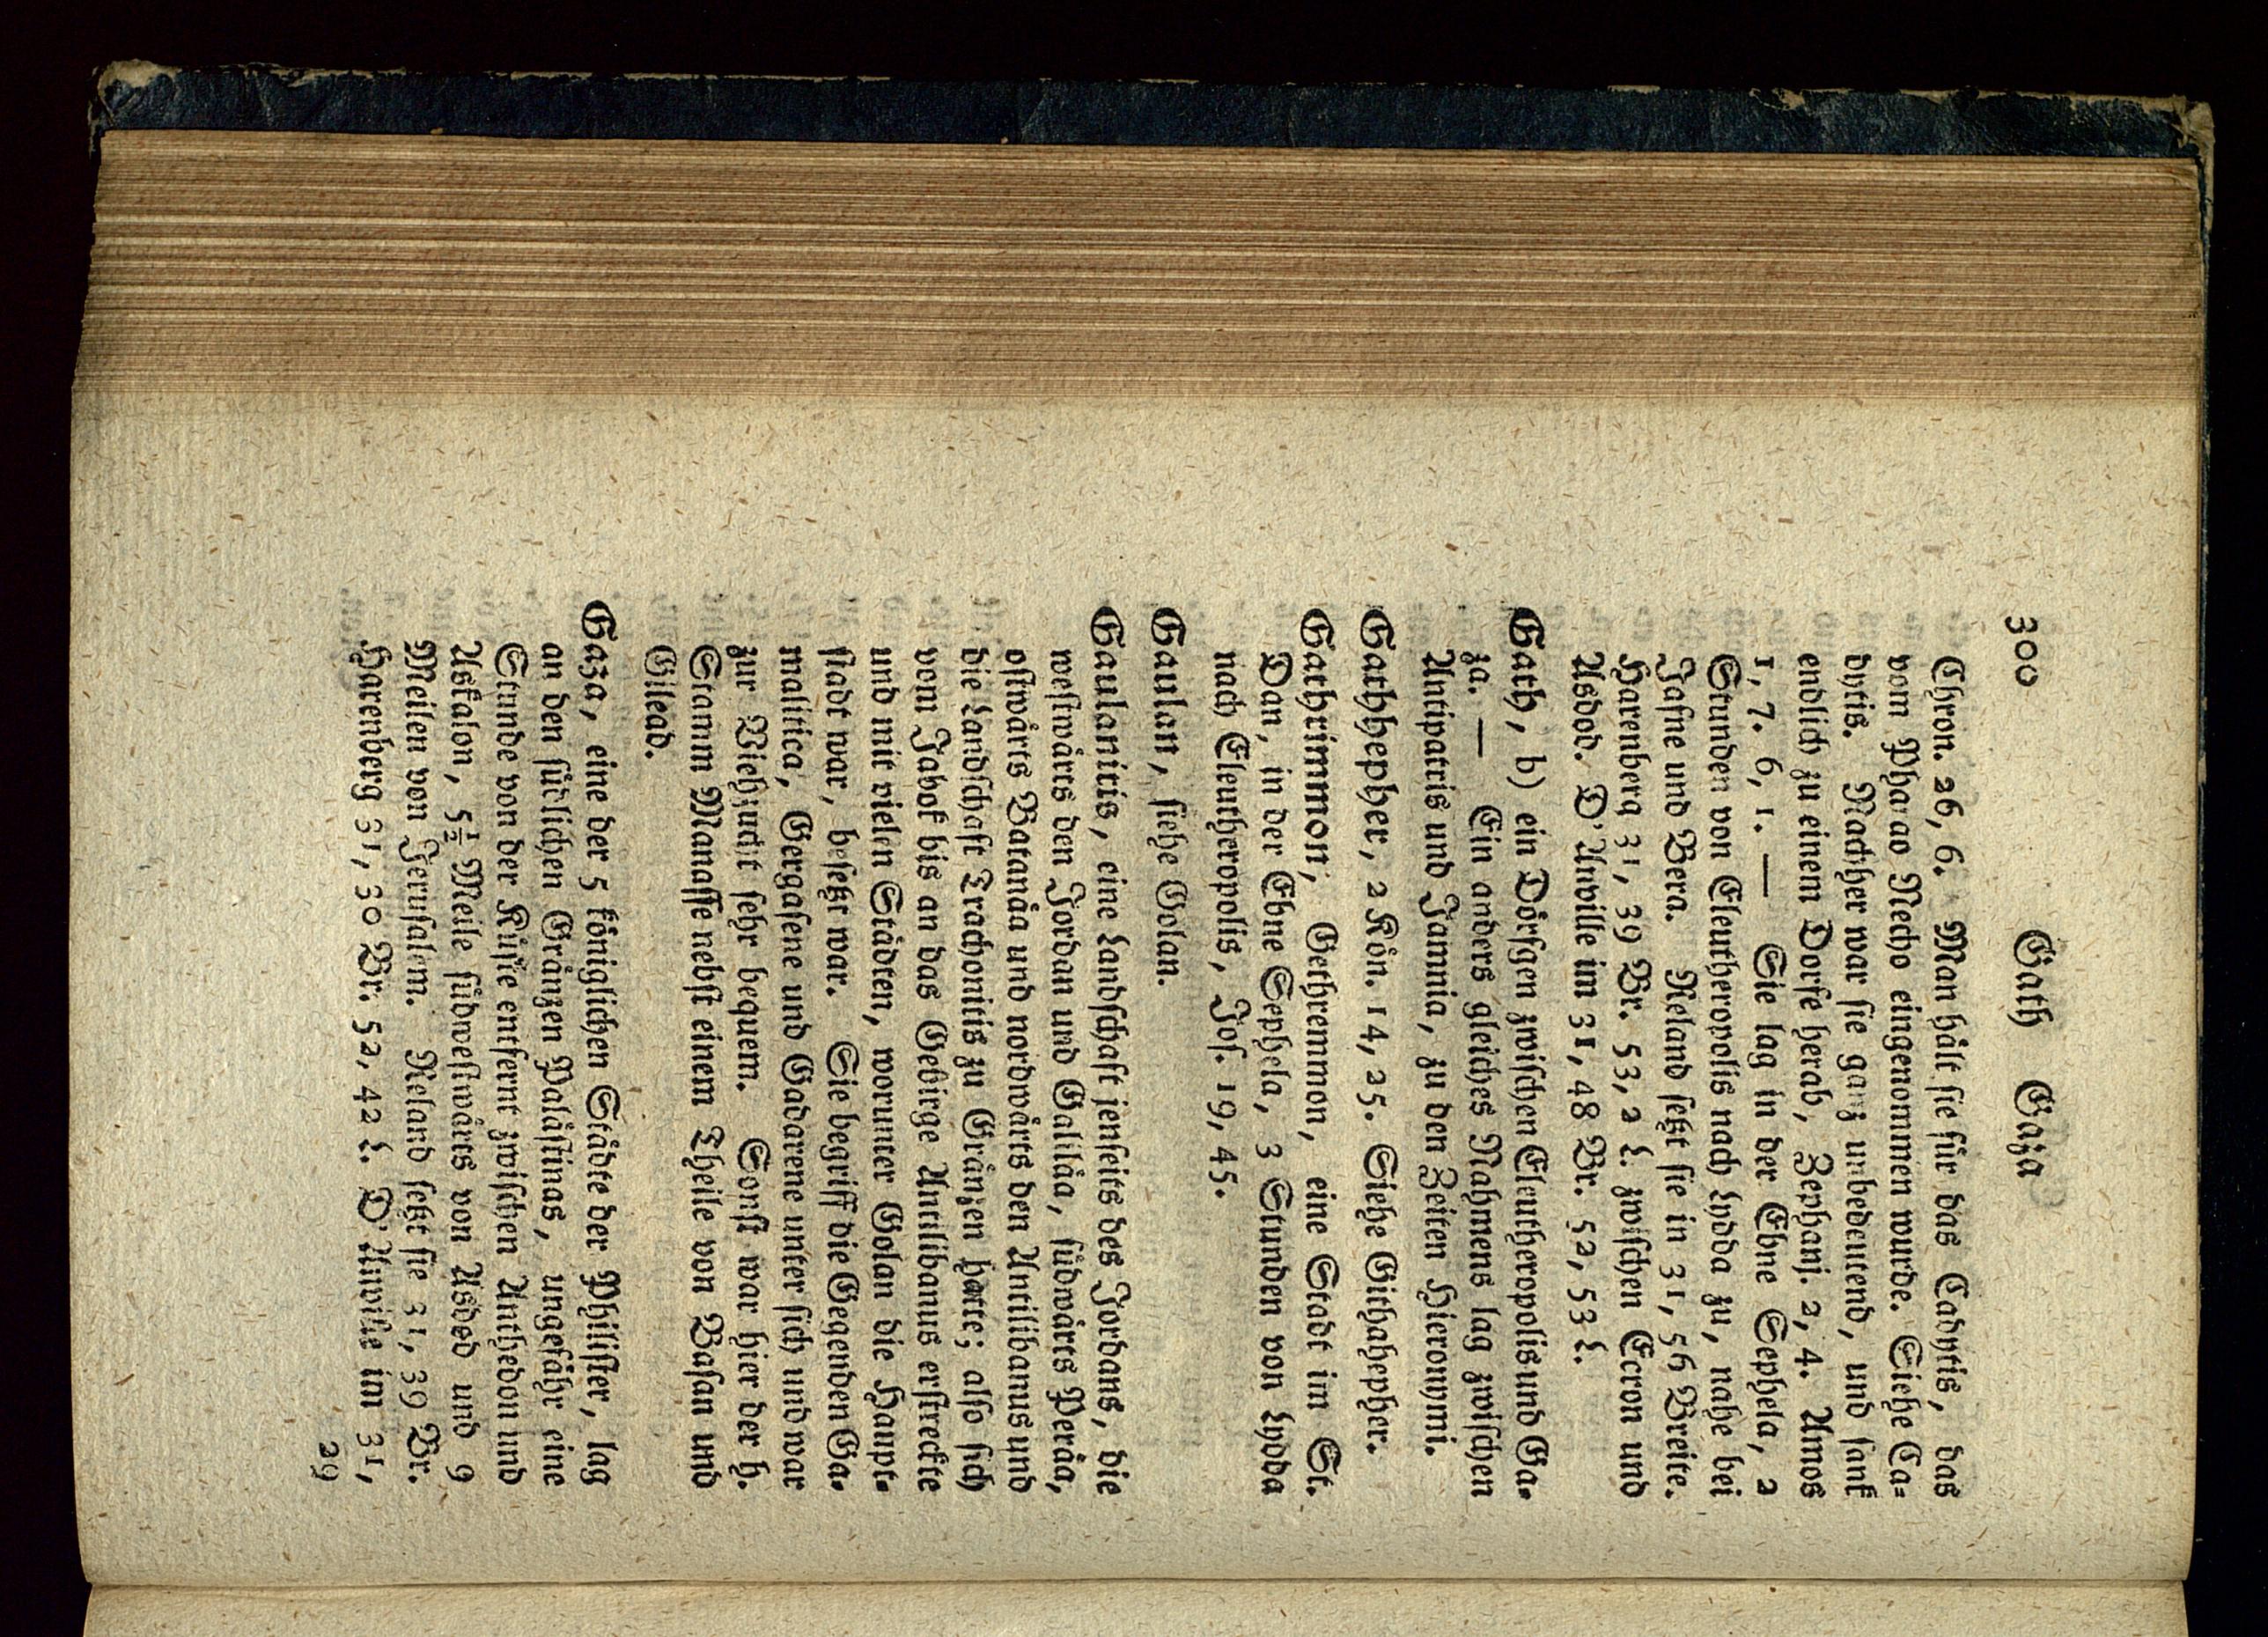 300 Gath Gaza
Chron. 26, 6. Man hält sie für das Cadytis, das
vom Pharao Necho eingenommen wurde. Siehe Ca-
dytis. Nachher war sie ganz unbedeutend, und sank
endlich zu einem Dorfe herab, Zephanj. 2, 4. Amos
1, 7. 6, 1. — Sie lag in der Ebne Sephela, 2
Stunden von Eleutheropolis nach Lydda zu, nahe bei
Jafne und Bera. Reland setzt sie in 31, 56 Breite.
Harenberg 31, 39 Br. 53, 2 L. zwischen Ecron und
Asdod. D'Anville im 31, 48 Br. 52, 53 L.
Gath, b) ein Dörfgen zwischen Eleutheropolis und Ga-
za. — Ein anders gleiches Nahmens lag zwischen
Antipatris und Jamnia, zu den Zeiten Hieronymi.
Gathhepher, 2 Kön. 14, 25. Siehe Githahepher.
Gathrimmon, Gethremmon, eine Stadt im St.
Dan, in der Ebne Sephela, 3 Stunden von Lydda
nach Eleutheropolis, Jos. 19, 45.
Gaulan, siehe Golan.
Gaulanitis, eine Landschaft jenseits des Jordans, die
westwärts den Jordan und Galiläa, südwärts Peräa,
ostwärts Batanäa und nordwärts den Antilibanus und
die Landschaft Trachonitis zu Gränzen hatte; also sich
vom Jabok bis an das Gebirge Antilibanus erstreckte
und mit vielen Städten, worunter Golan die Haupt-
stadt war, besetzt war. Sie begriff die Gegenden Ga-
malitica, Gergasene und Gadarene unter sich und war
zur Viehzucht sehr bequem. Sonst war hier der h.
Stamm Manasse nebst einem Theile von Basan und
Gilead.
Gaza, eine der 5 königlichen Städte der Philister, lag
an den südlichen Gränzen Palästinas, ungefähr eine
Stunde von der Küste entfernt zwischen Anthedon und
Askalon, 5½ Meile südwestwärts von Asdod und 9
Meilen von Jerusalem. Reland setzt sie 31, 39 Br.
Harenberg 31, 30 Br. 52, 42 L. D'Anville im 31,
29